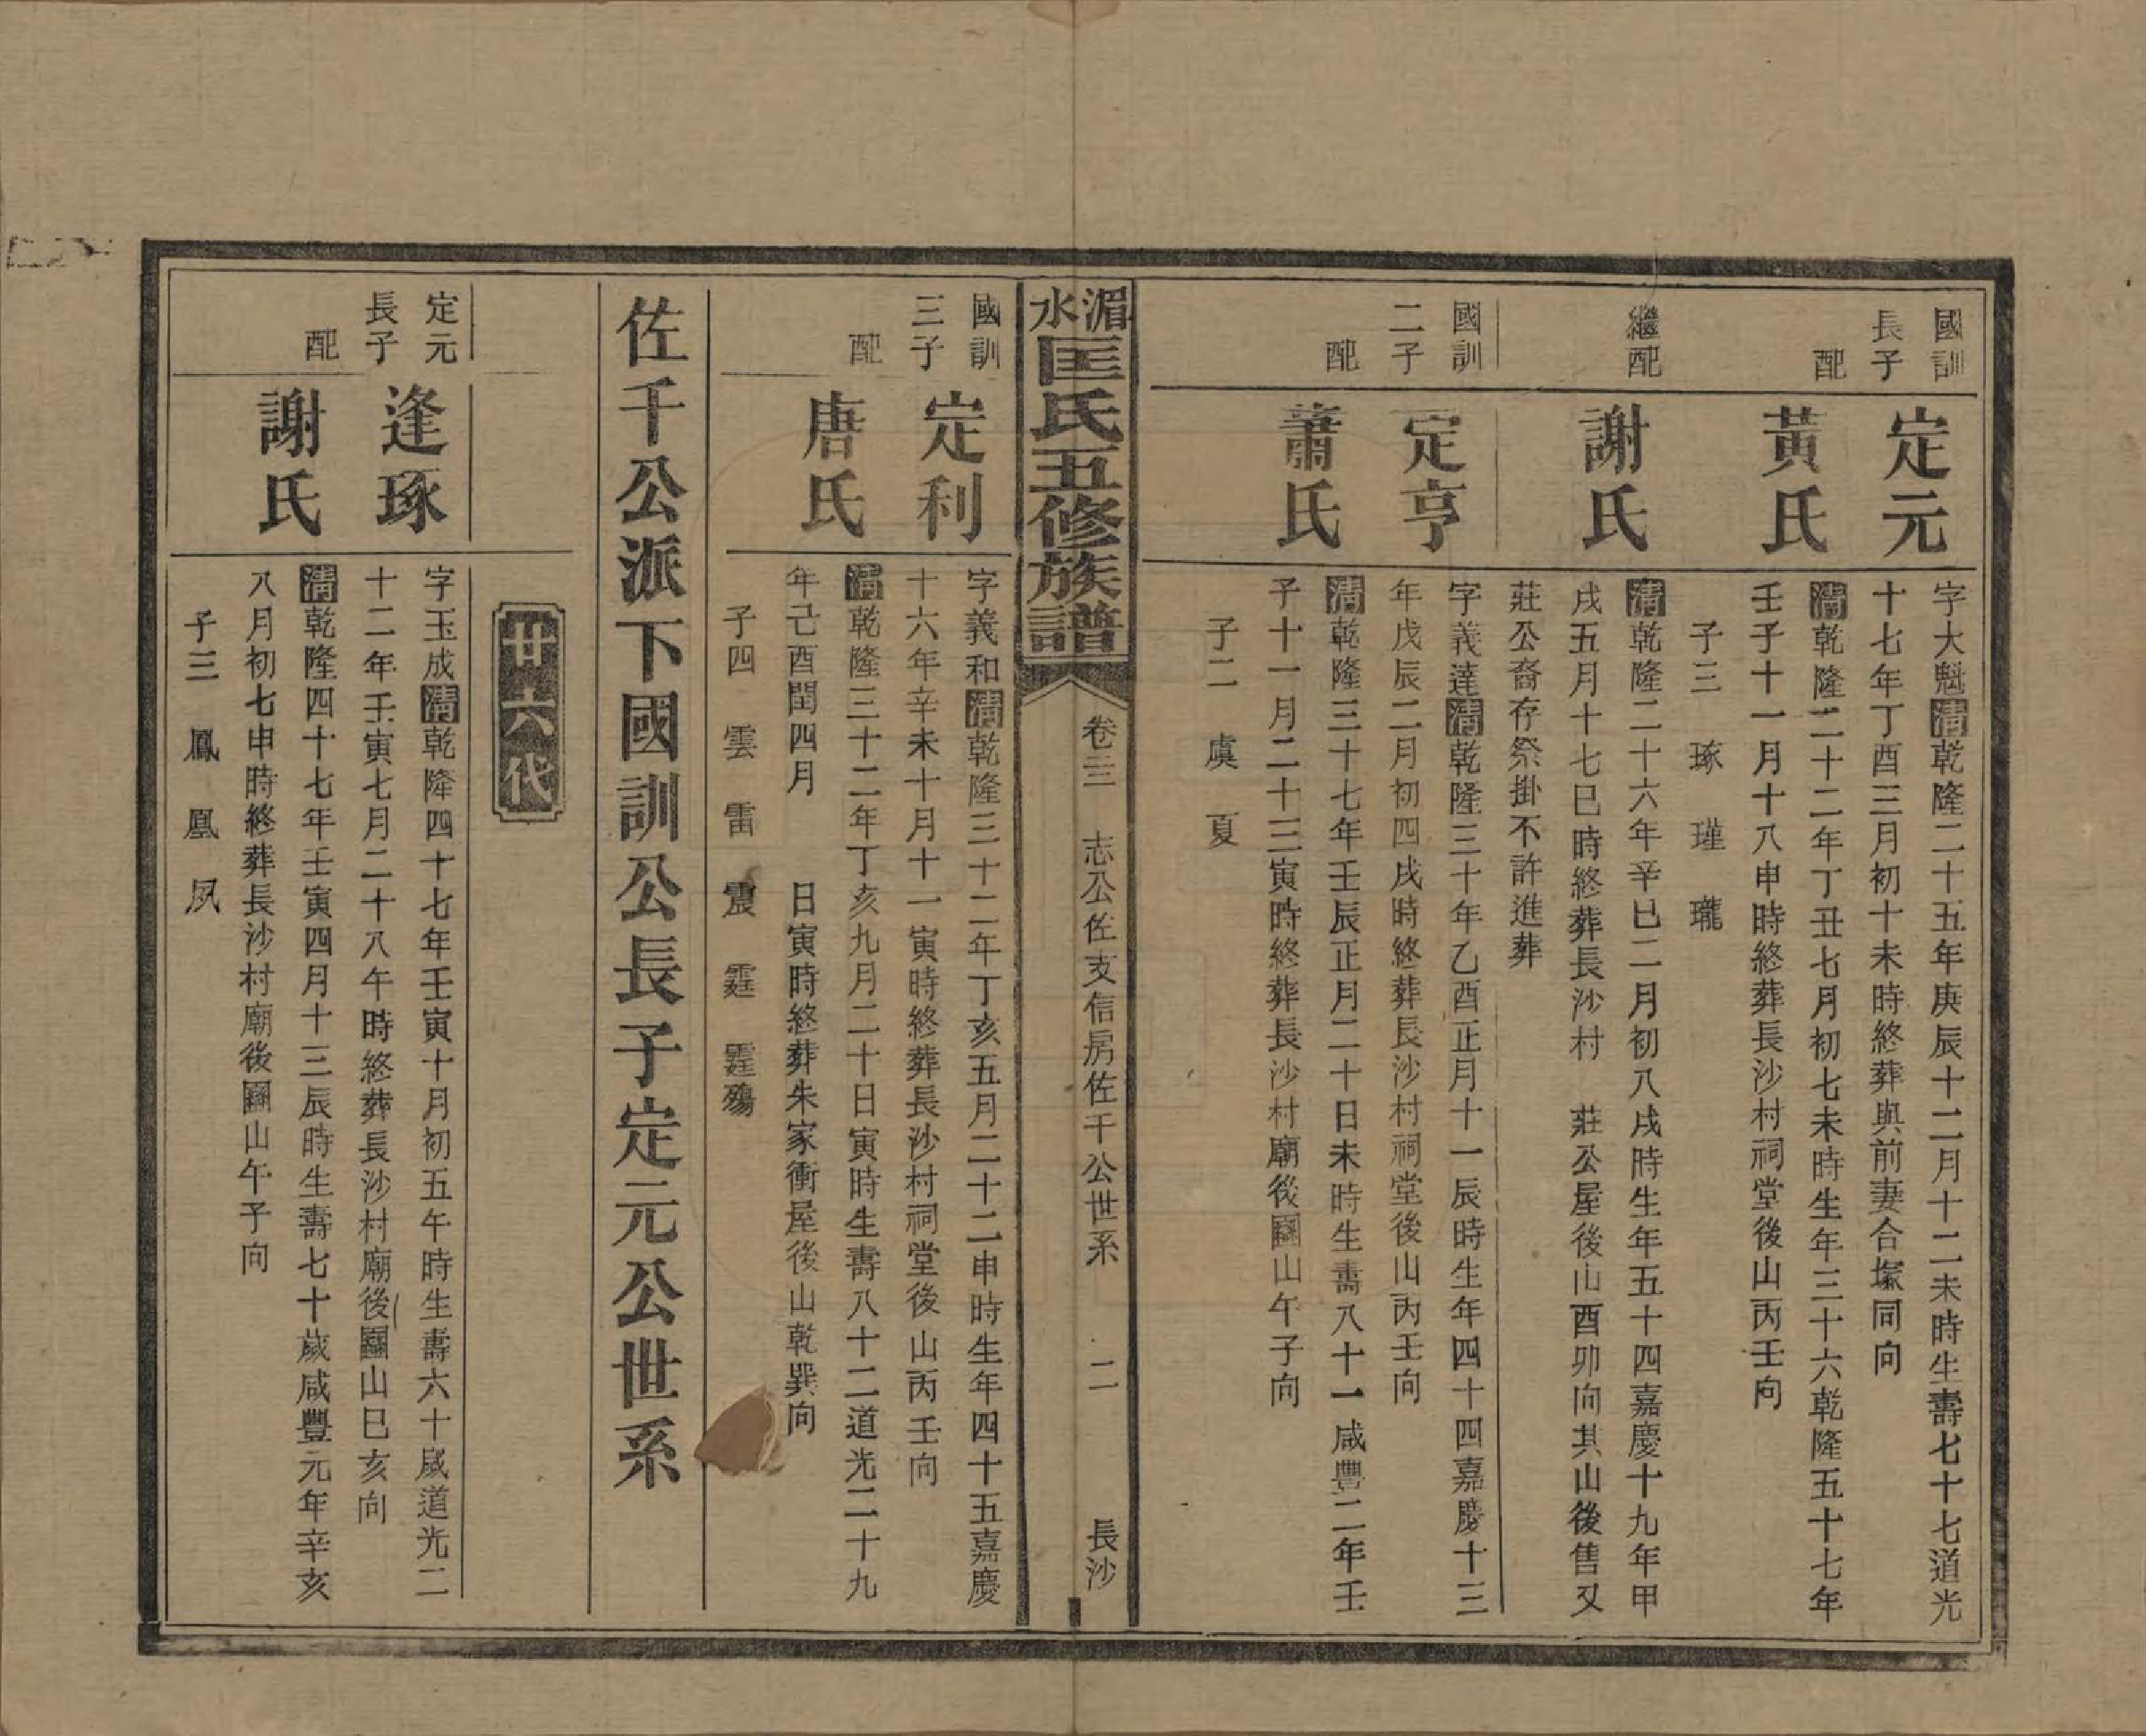 國訓
長子
定元
字大魁清乾隆二十五年庚辰十二月十二未時生壽七十七道光
十七年丁酉三月初十未時終葬與前妻合塚同向
配
黃氏
清乾隆二十二年丁丑七月初七未時生年三十六乾隆五十七年
壬子十一月十八申時終葬長沙村祠堂後山丙壬向
子三 琢 瑾 瓏
繼配
謝氏
清乾隆二十六年辛巳二月初八戌時生年五十四嘉慶十九年甲
戌五月十七巳時終葬長沙村 莊公屋後山酉卯向其山後售又
莊公裔存祭掛不許進葬
國訓
二子
定亨
字義達清乾隆三十年乙酉正月十一辰時生年四十四嘉慶十三
年戊辰二月初四戌時終葬長沙村祠堂後山丙壬向
配
蕭氏
清乾隆三十七年壬辰正月二十日未時生壽八十一咸豐二年壬
子十一月二十三寅時終葬長沙村廟後圝山午子向
子二 虞 夏
湄水匡氏五修族譜
卷三 志公佐支信房佐千公世系 二 長沙
國訓
三子
定利
字義和清乾隆三十二年丁亥五月二十二申時生年四十五嘉慶
十六年辛未十月十一寅時終葬長沙村祠堂後山丙壬向
配
唐氏
清乾隆三十二年丁亥九月二十日寅時生壽八十二道光二十九
年己酉閏四月 日寅時終葬朱家衝屋後山乾巽向
子四 雲 雷 震 霆 霆殤
佐千公派下國訓公長子定元公世系
廿六代
定元
長子
逢琢
字玉成清乾隆四十七年壬寅十月初五午時生壽六十歲道光二
十二年壬寅七月二十八午時終葬長沙村廟後圝山巳亥向
配
謝氏
清乾隆四十七年壬寅四月十三辰時生壽七十歲咸豐元年辛亥
八月初七申時終葬長沙村廟後圝山午子向
子三 鳳 凰 夙